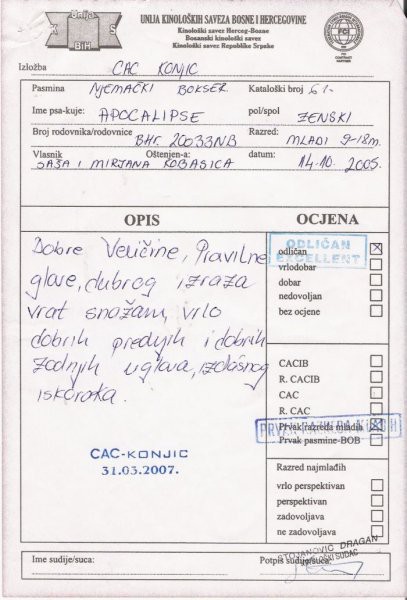 Unija
BiH
S
UNIJA KINOLOŠKIH SAVEZA BOSNE I HERCEGOVINE
Kinološki savez Herceg-Bosne
Bosanski kinološki savez
Kinološki savez Republike Srpske
FCI
Izložba CAC KONJIC
Pasmina NJEMAČKI BOKSER Kataloški broj 61-
Ime psa-kuje: APOCALIPSE pol/spol ŽENSKI
Broj rodovnika/rodovnice BHR 20033NB Razred: MLADI 9-18m.
Vlasnik Oštenjen-a: datum: 14.10.2005.
SAŠA I MIRJANA ROBASICA
OPIS OCJENA
Dobre Veličine, Pravilne
glave, dubrog izraza
vrat snažam, vrlo
dobrih prednjih i dobrih
zadnjih uglova, izdašnog
iskoraka.
CAC-KONJIC
31.03.2007.
ODLIČAN
EXCELLENT
odličan
vrlodobar
dobar
nedovoljan
bez ocjene
CACIB
R. CACIB
CAC
R. CAC
Prvak razreda mladih
PRVAK RAZREDA MLADIH
Prvak pasmine-BOB
Razred najmlađih
vrlo perspektivan
perspektivan
zadovoljava
ne zadovoljava
Ime sudije/suca: Potpis sudije/suca:
STOJANOVIĆ DRAGAN
KINOLOŠKI SUDAC